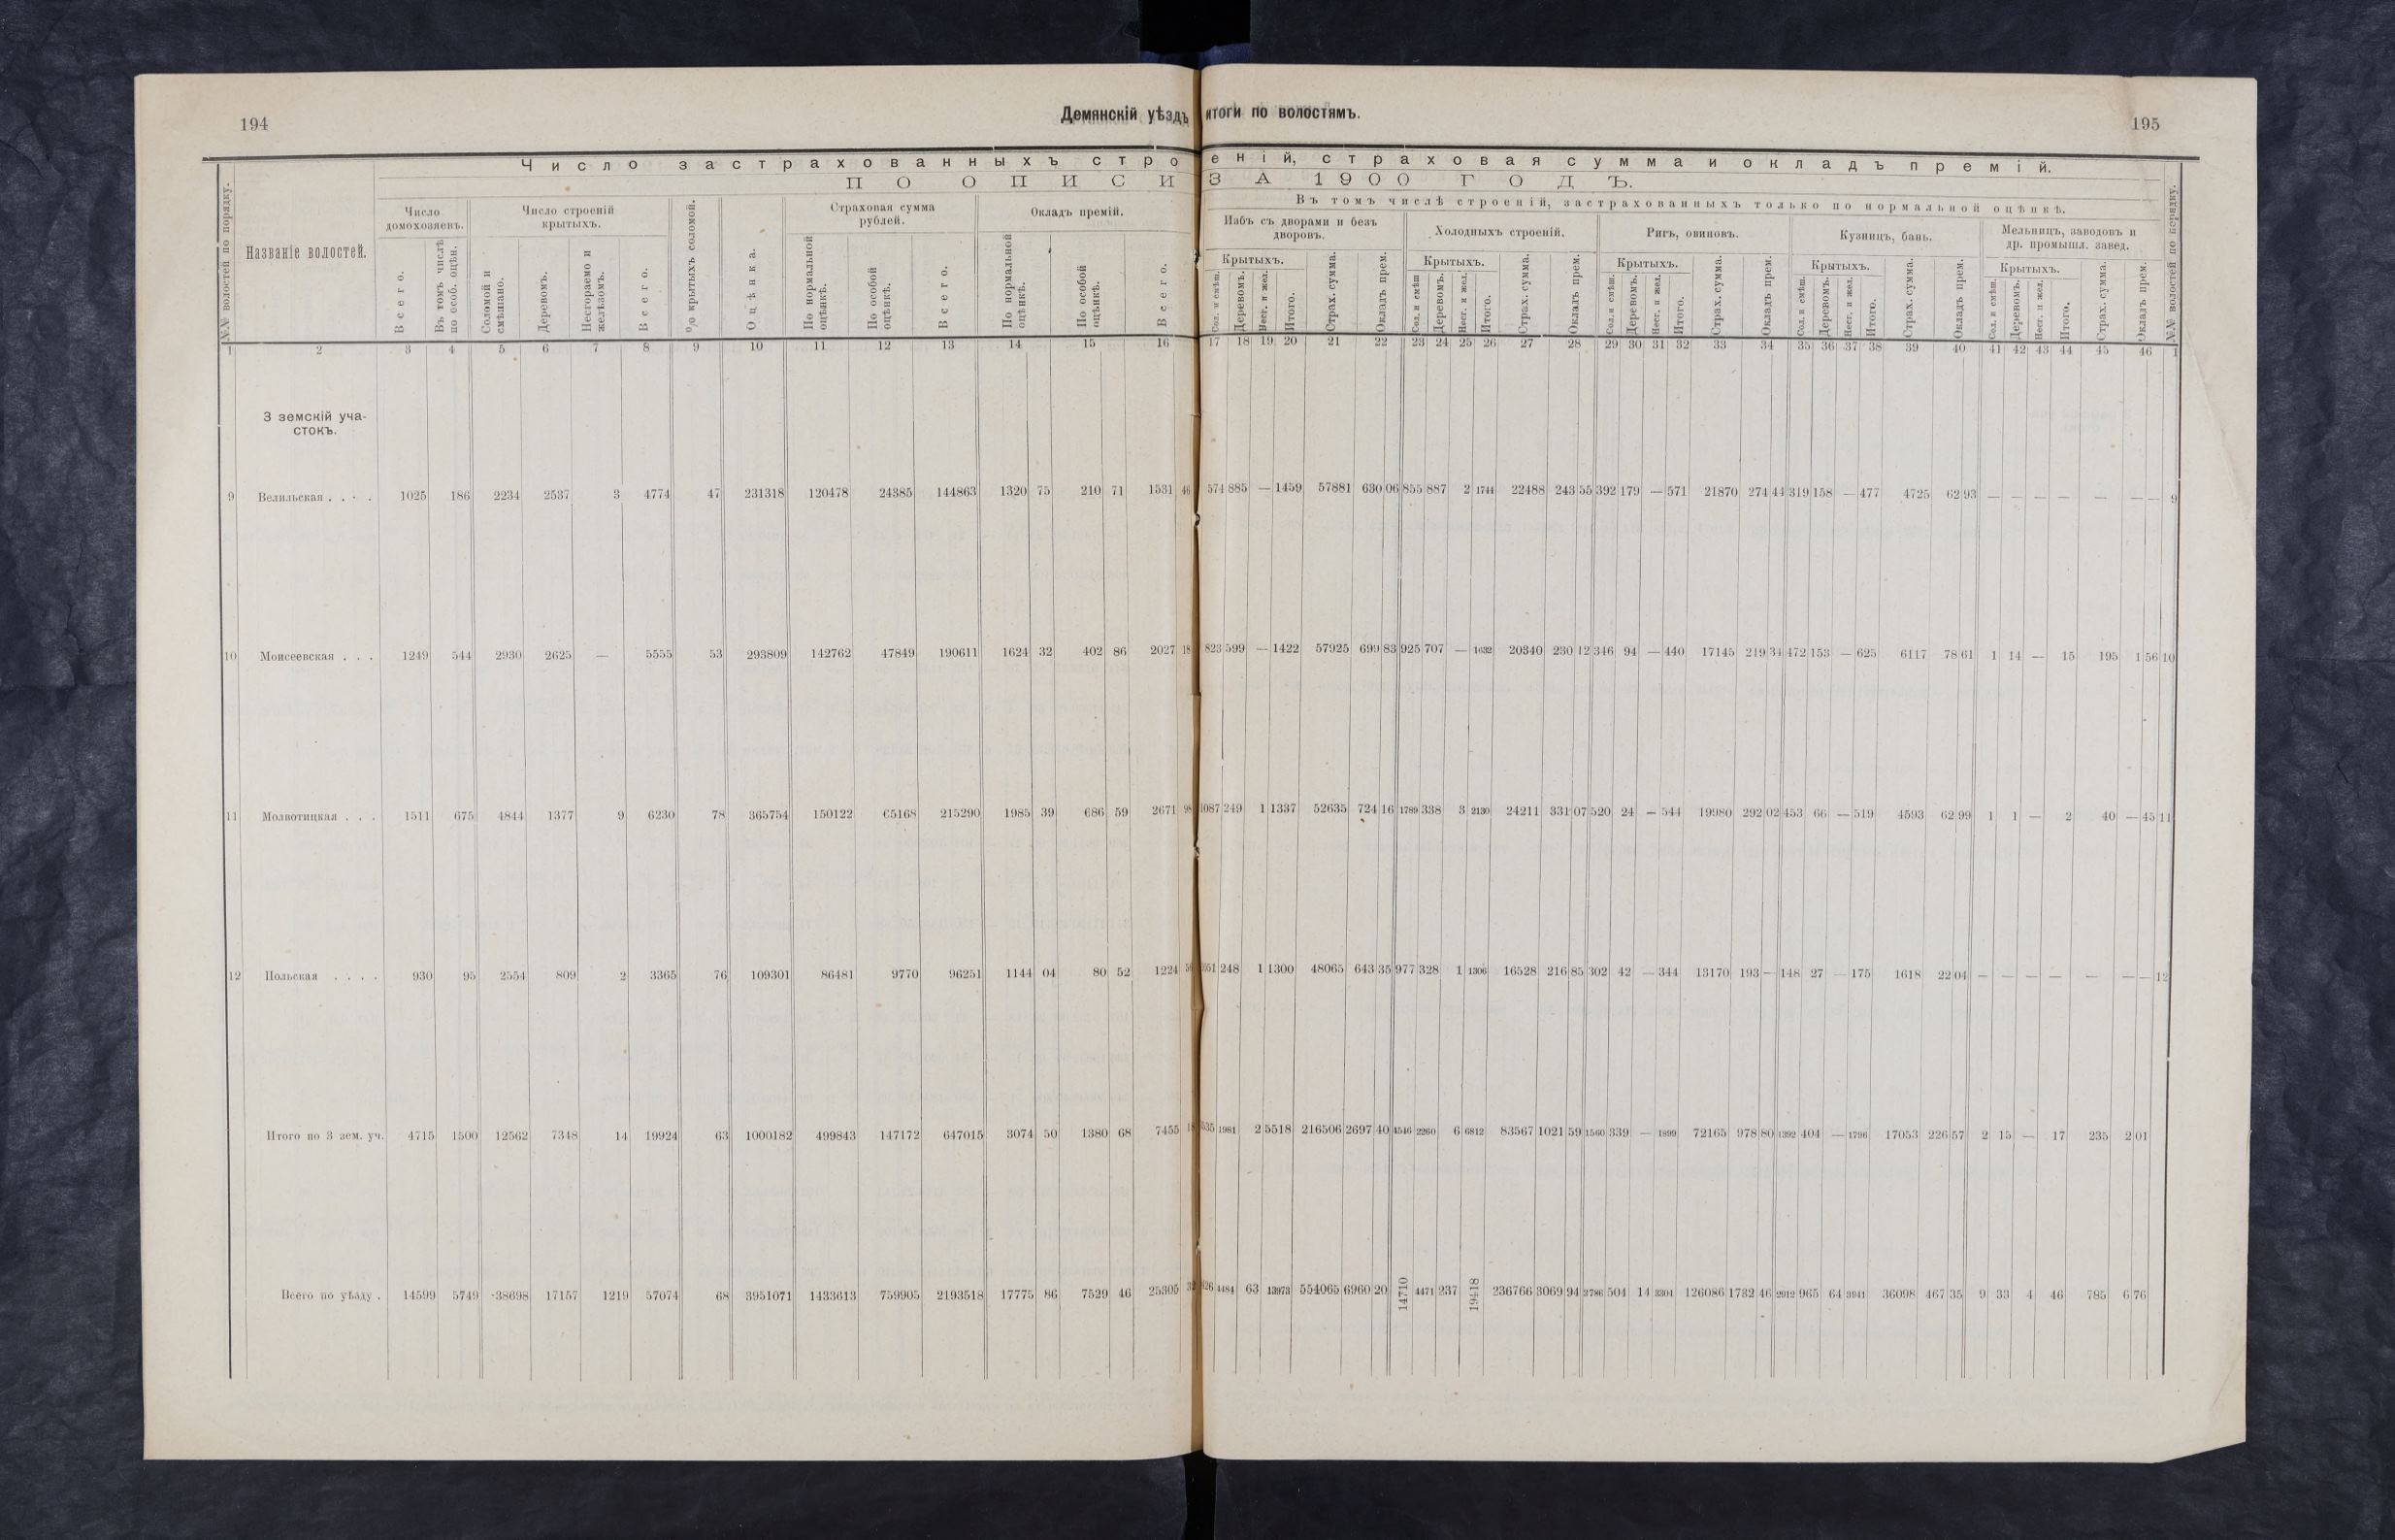 194
Демянскій уѣздъ итоги по волостямъ.
195
Число застрахованныхъ строеній, страховая сумма и окладъ премій.
ПО ОПИСИ ЗА 1900 ГОДЪ.
Въ томъ числѣ строеній, застрахованныхъ только по нормальной оцѣнкѣ.
№№ волостей по порядку.
Названіе волостей.
Число домохозяевъ.
Всего.
Въ томъ числѣ по особ. оцѣн.
Число строеній крытыхъ.
Соломой и смѣшано.
Деревомъ.
Несгораемо и желѣзомъ.
Всего.
% крытыхъ соломой.
Оцѣнка.
Страховая сумма рублей.
По нормальной оцѣнкѣ.
По особой оцѣнкѣ.
Всего.
Окладъ премій.
По нормальной оцѣнкѣ.
По особой оцѣнкѣ.
Всего.
Избъ съ дворами и безъ дворовъ.
Крытыхъ.
Сол. и смѣш.
Деревомъ.
Несг. и жел.
Итого.
Страх. сумма.
Окладъ прем.
Холодныхъ строеній.
Крытыхъ.
Сол. и смѣш
Деревомъ.
Несг. и жел.
Итого.
Страх. сумма.
Окладъ прем.
Ригъ, овиновъ.
Крытыхъ.
Сол. и смѣш.
Деревомъ.
Несг. и жел.
Итого.
Страх. сумма.
Окладъ прем.
Кузницъ, бань.
Крытыхъ.
Сол. и смѣш.
Деревомъ.
Несг. и жел.
Итого.
Страх. сумма.
Окладъ прем.
Мельницъ, заводовъ и др. промышл. завед.
Крытыхъ.
Сол. и смѣш.
Деревомъ.
Несг. и жел.
Итого.
Страх. сумма.
Окладъ прем.
№№ волостей по порядку.
1 2 3 4 5 6 7 8 9 10 11 12 13 14 15 16 17 18 19 20 21 22 23 24 25 26 27 28 29 30 31 32 33 34 35 36 37 38 39 40 41 42 43 44 45 46 1
3 земскій уча-
стокъ.
9 Велильская . . . . 1025 186 2234 2537 3 4774 47 231318 120478 24385 144863 1320 75 210 71 1531 46 574 885 — 1459 57881 630 06 855 887 2 1744 22488 243 55 392 179 — 571 21870 274 44 319 158 — 477 4725 62 93 — — — — — — — 9
10 Моисеевская . . . 1249 544 2930 2625 — 5555 53 293809 142762 47849 190611 1624 32 402 86 2027 18 823 599 — 1422 57925 699 83 925 707 — 1632 20340 230 12 346 94 — 440 17145 219 34 472 153 — 625 6117 78 61 1 14 — 15 195 1 56 10
11 Молвотицкая . . . 1511 675 4844 1377 9 6230 78 365754 150122 65168 215290 1985 39 686 59 2671 98 1087 249 1 1337 52635 724 16 1789 338 3 2130 24211 331 07 520 24 — 544 19980 292 02 453 66 — 519 4593 62 99 1 1 — 2 40 — 45 11
12 Польская . . . . 930 95 2554 809 2 3365 76 109301 86481 9770 96251 1144 04 80 52 1224 56 1051 248 1 1300 48065 643 35 977 328 1 1306 16528 216 85 302 42 — 344 13170 193 — 148 27 — 175 1618 22 04 — — — — — — — 12
Итого по 3 зем. уч. 4715 1500 12562 7348 14 19924 63 1000182 499843 147172 647015 3074 50 1380 68 7455 18 1981 2 5518 216506 2697 40 4546 2260 6 6812 83567 1021 59 1560 339 — 1899 72165 978 80 1392 404 — 1796 17053 226 57 2 15 — 17 235 2 01
Всего по уѣзду . 14599 5749 38698 17157 1219 57074 68 3951071 1433613 759905 2193518 17775 86 7529 46 25305 32 4484 63 13973 554065 6960 20 14710 4471 237 19418 236766 3069 94 2786 504 14 3304 126086 1732 46 2912 965 64 3941 36098 467 35 9 33 4 46 785 6 76